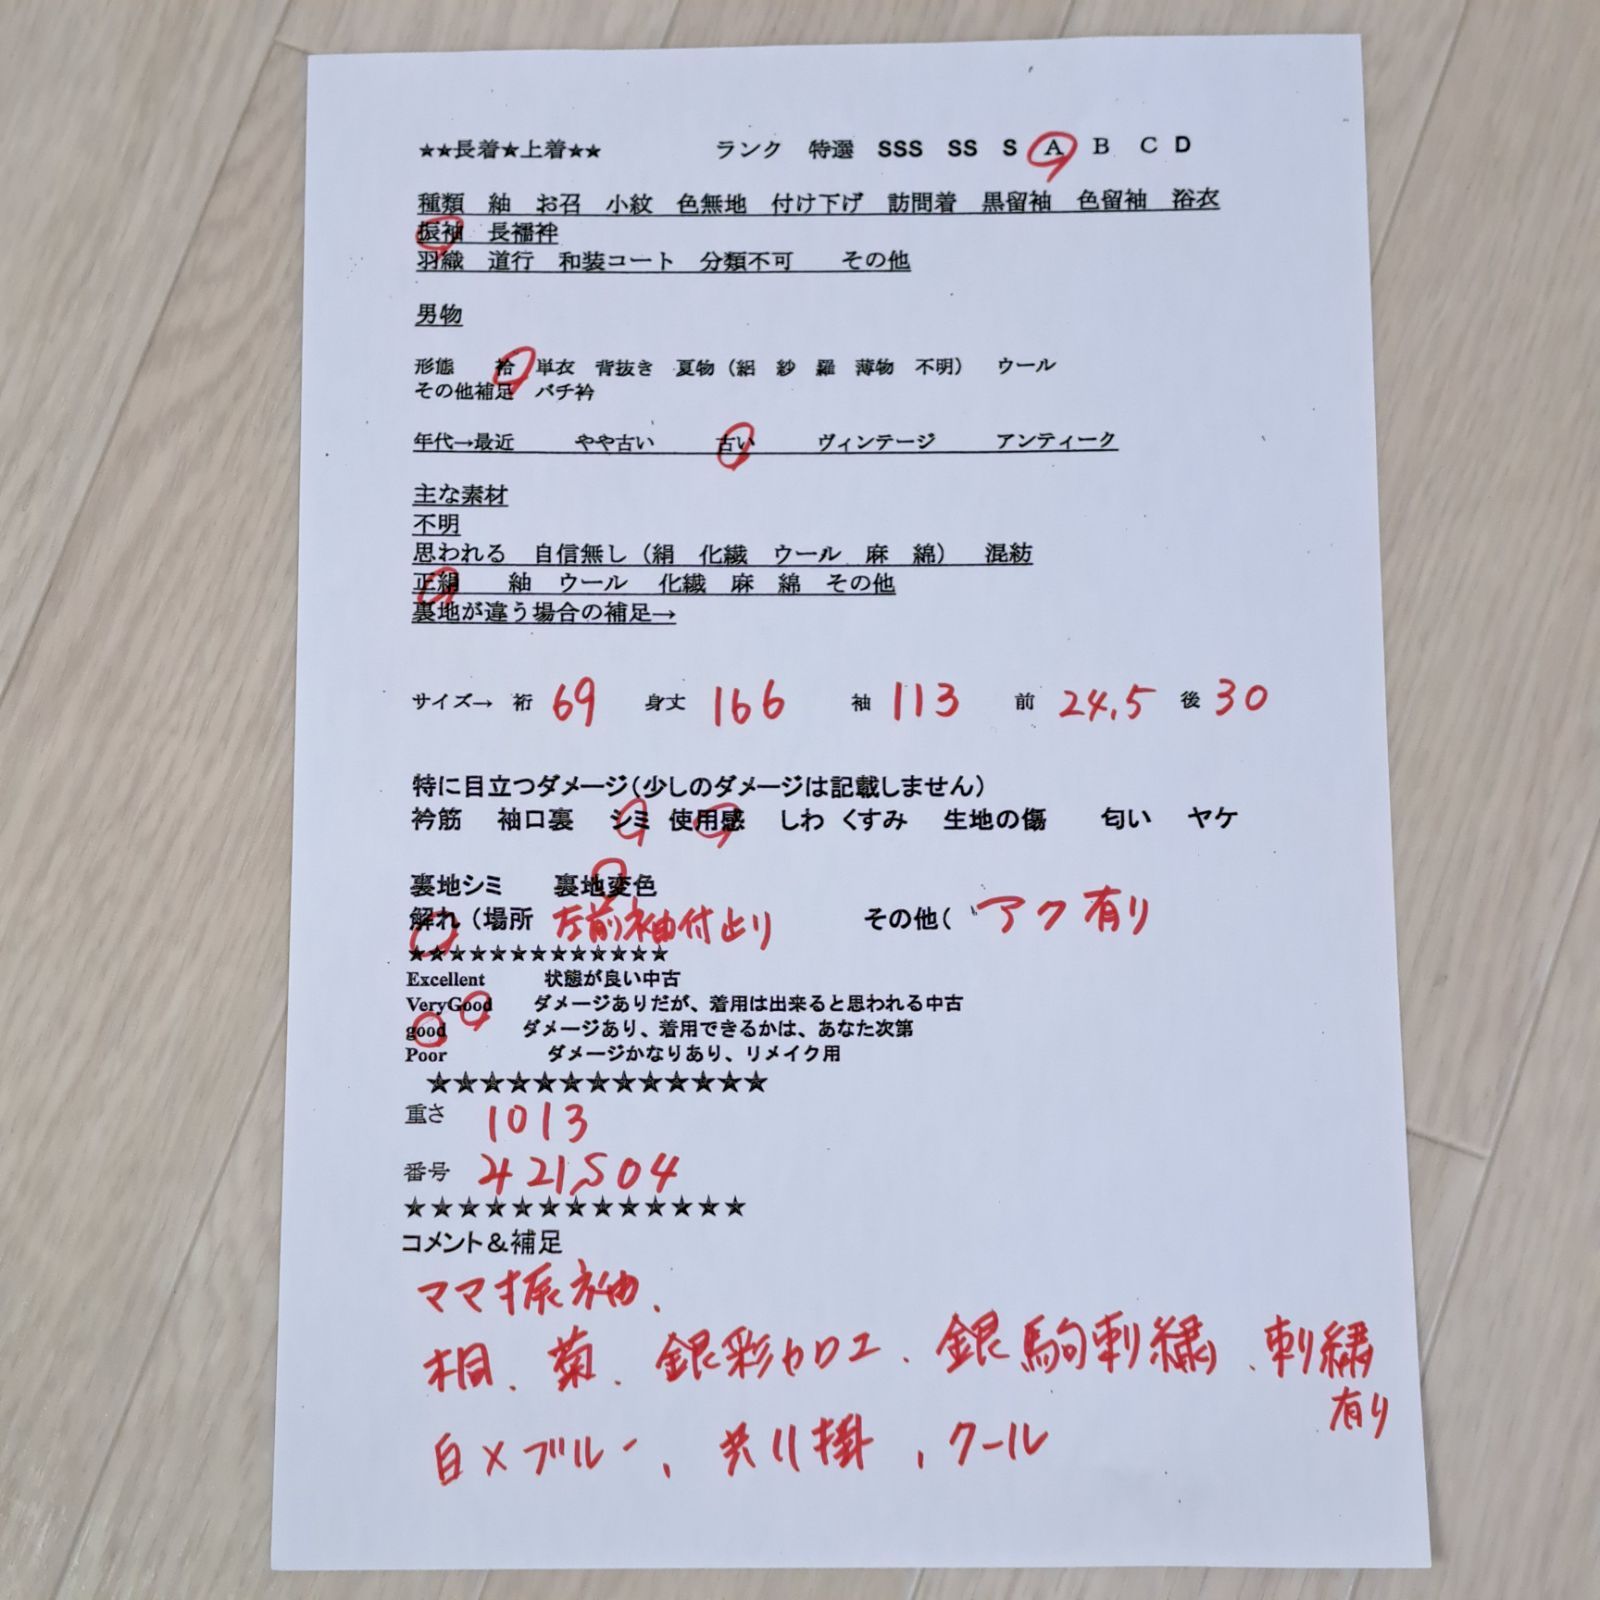 ★★長着★上着★★　ランク　特選　SSS　SS　S　A　B　C　D
種類　紬　お召　小紋　色無地　付け下げ　訪問着　黒留袖　色留袖　浴衣
振袖　長襦袢
羽織　道行　和装コート　分類不可　その他
男物
形態　袷　単衣　背抜き　夏物（絽　紗　羅　薄物　不明）　ウール
その他補足　バチ衿
年代→最近　やや古い　古い　ヴィンテージ　アンティーク
主な素材
不明
思われる　自信無し（絹　化繊　ウール　麻　綿）　混紡
正絹　紬　ウール　化繊　麻　綿　その他
裏地が違う場合の補足→
サイズ→　裄　69　身丈　166　袖　113　前　24.5　後　30
特に目立つダメージ（少しのダメージは記載しません）
衿筋　袖口裏　シミ　使用感　しわ　くすみ　生地の傷　匂い　ヤケ
裏地シミ　裏地変色
解れ（場所　左前袖付止り　その他（　アク有り
★★★★★★★★★★★★★
Excellent　状態が良い中古
VeryGood　ダメージありだが、着用は出来ると思われる中古
good　ダメージあり、着用できるかは、あなた次第
Poor　ダメージかなりあり、リメイク用
★★★★★★★★★★★★★
重さ　1013
番号　421,504
★★★★★★★★★★★★★
コメント＆補足
ママ振袖、
桐、菊、銀彩加工、銀駒刺繍、刺繍
有り
白×ブルー、共八掛、クール